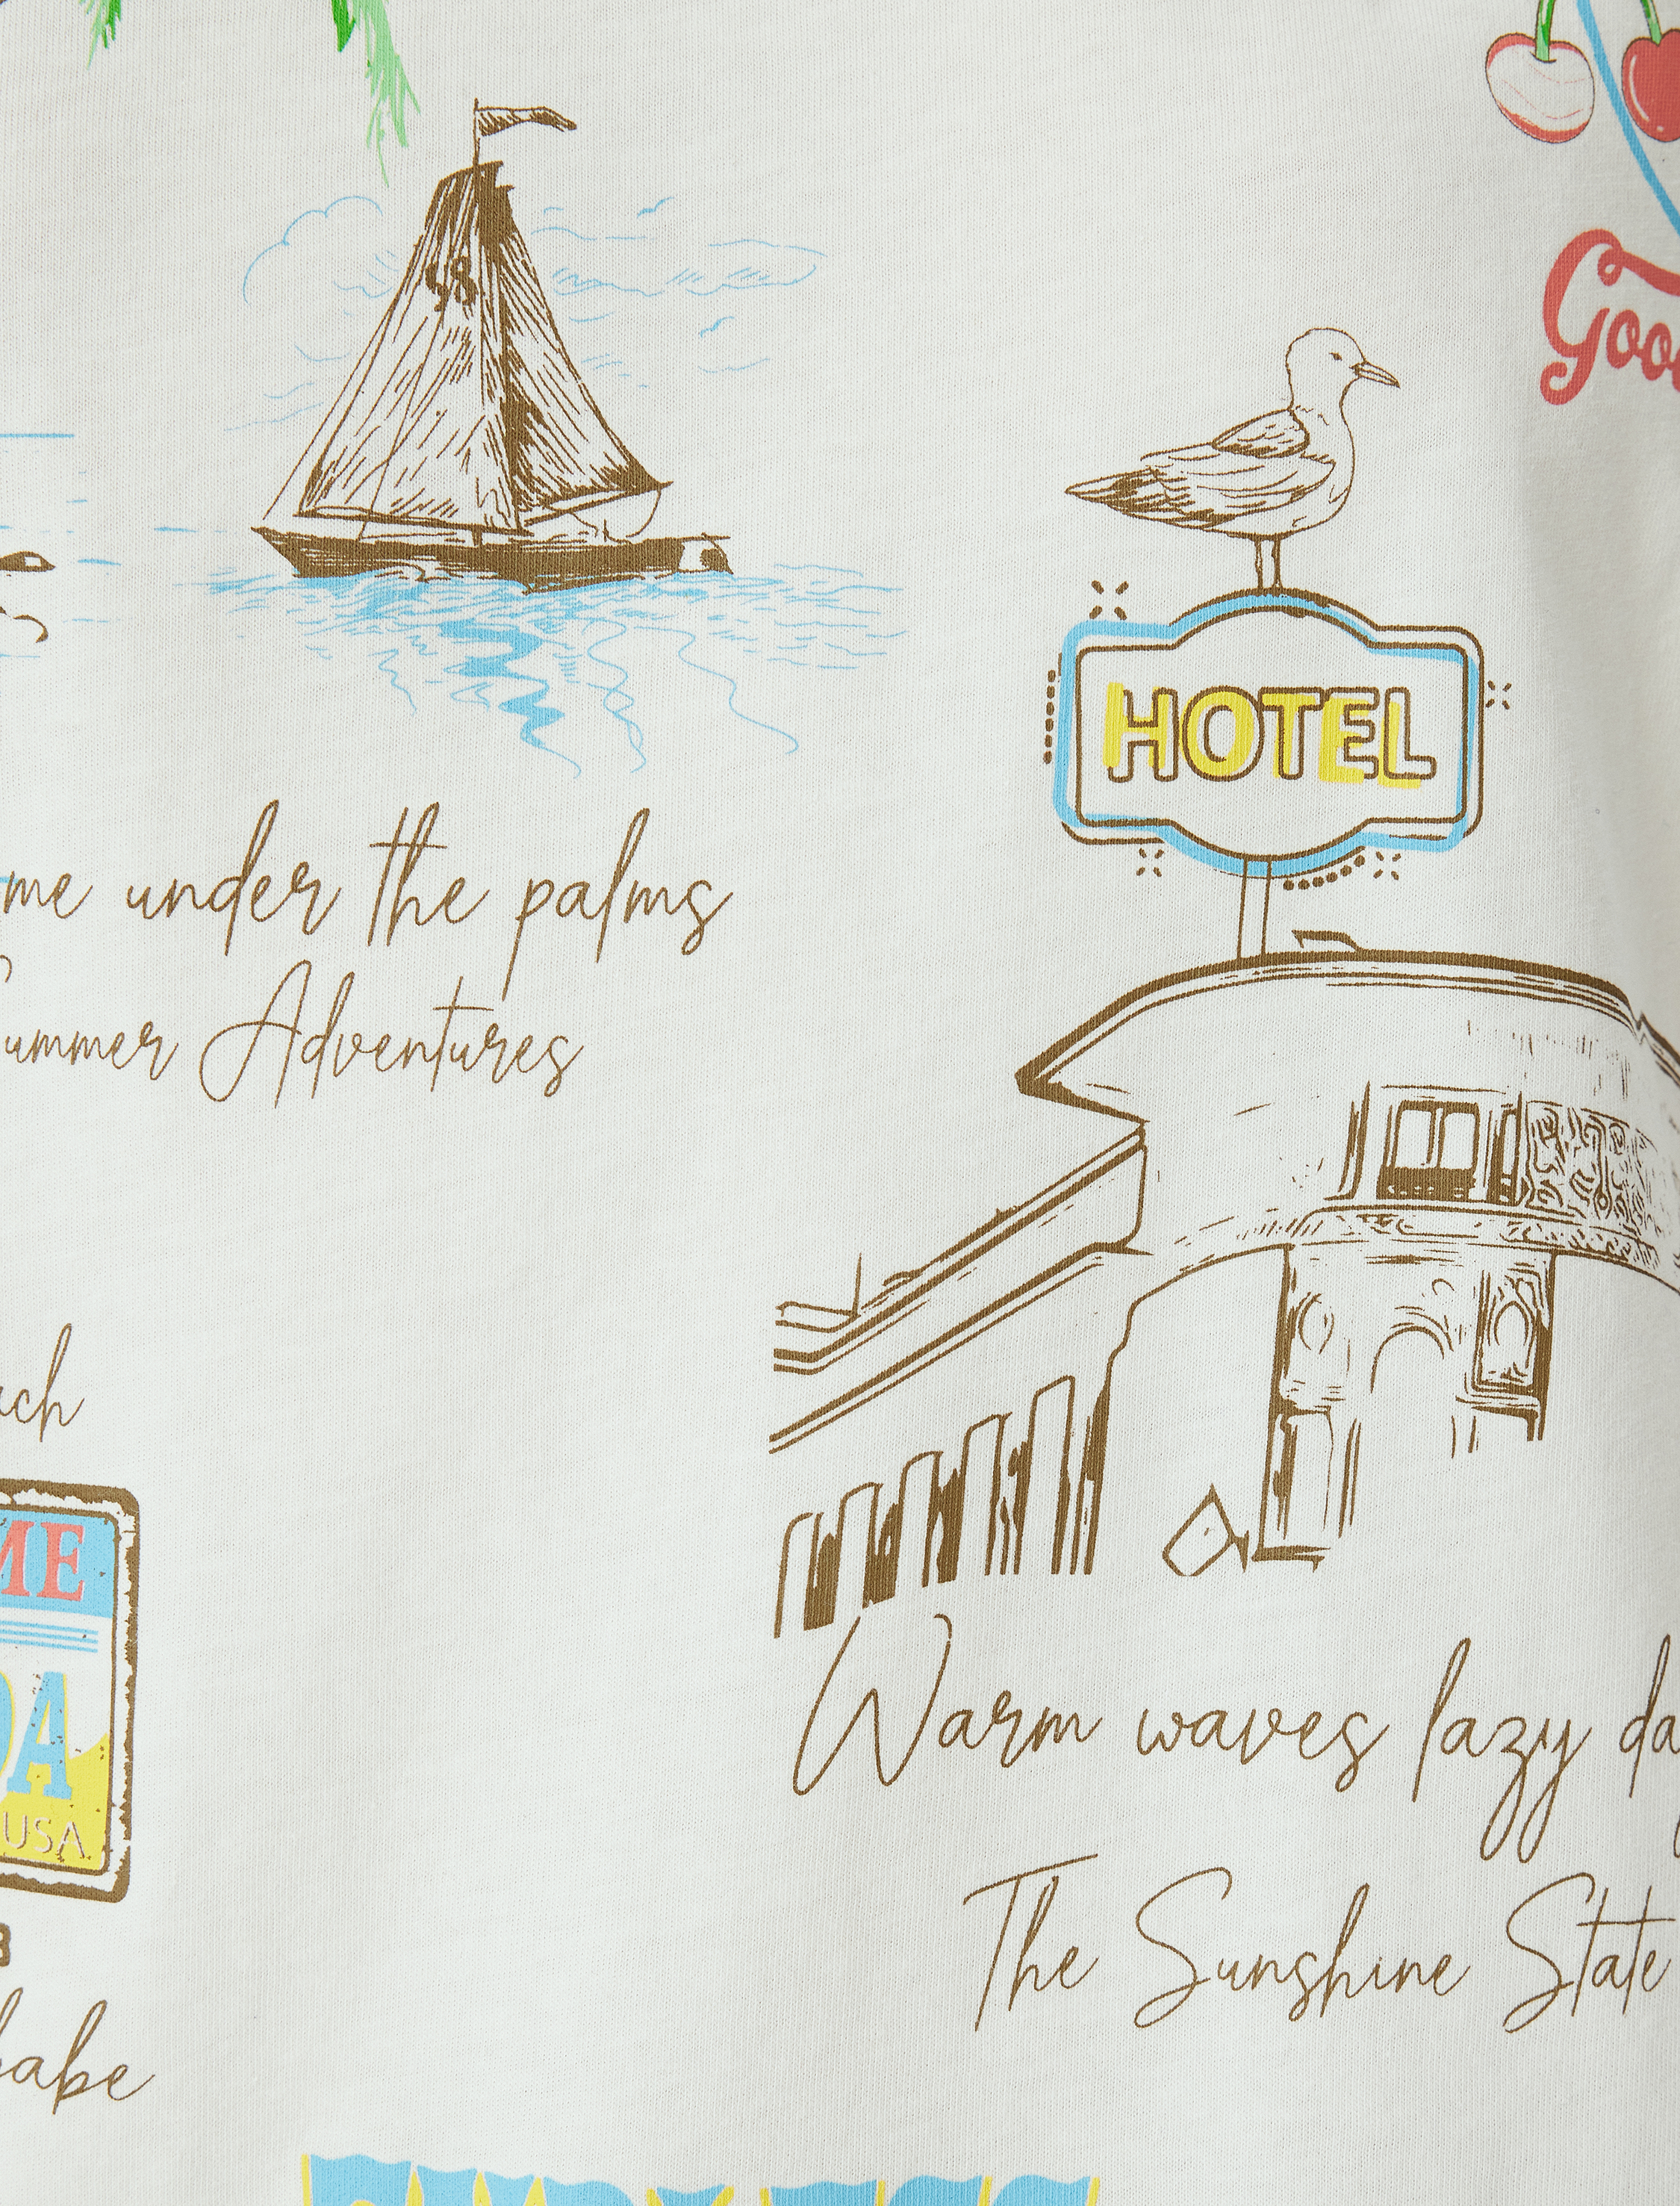 98
Goo
HOTEL
me under the palms
ummer Adventures
ch
ME
DA
USA
Warm waves lazy da
The Sunshine State
babe